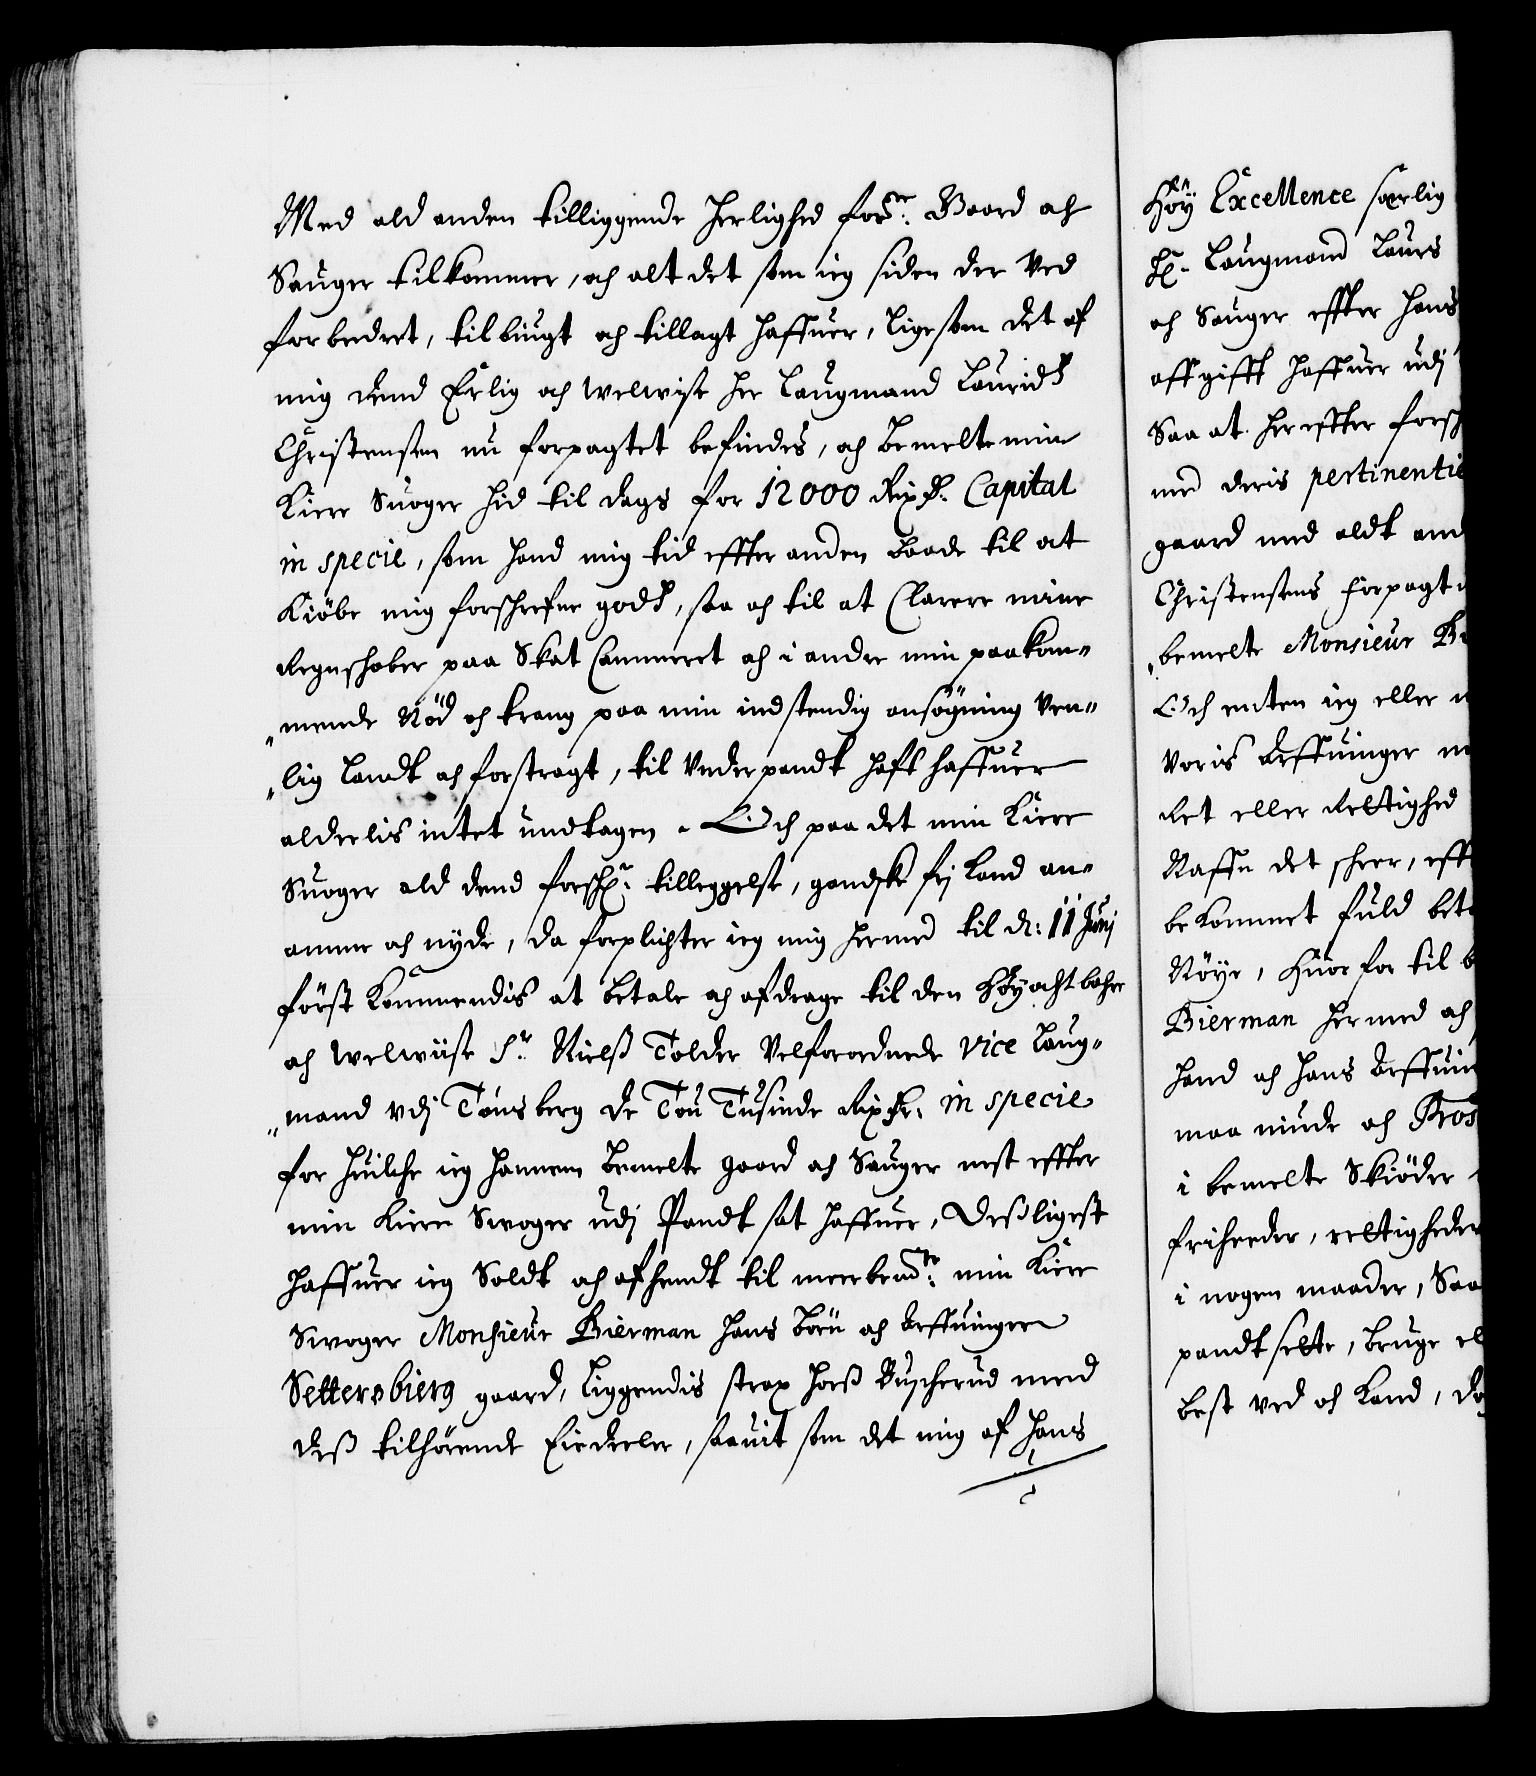 Med ald anden tilliggende herlighed forne: Gaard och
Sauger tilkommer, och alt det som ieg siden der ved
forbedret, tilbiugt och tillagt haffuer, ligesom det af
mig dend Erlig och welwise her Laugmand Lauridtz
Christensen nu forpagtet befindes, och bemelte min
Kiere Suoger hid til dags for 12000 Rixdr. Capital
in specie, som hand mig tid effter anden baade til at
Kiöbe mig forschrefne godtz, saa och til at Clarere mine
Regnschaber paa Skat Cammeret och i andre min paakom„
„mende Nöd och trang paa min indstendig ansögning ven„
„lig laandt och forstragt, til vnderpandt hafft haffuer
alderlis intet undtagen. Och paa det min Kiere
Suoger ald dend forschr: tilleggelse, gandske frj kand an„
amme och nyde, da forplichter ieg mig hermed til d: 11 Junj
förstkommendis at betale och afdrage til den Höyachtbahre
och Welwiise Sr. Nielß Tolder Velforordnede Vice Laug„
„mand vdj Tönsberg de Tou Tusinde Rixdr. in specie
for huilche ieg hannem bemelte gaard och Sauger nest effter
min Kiere Swoger udj Pandt sat haffuer, Deßligest
haffuer ieg Soldt och afhendt til meerbemte: min Kiere
Swoger Monsieur Bierman hans börn och Arffuinger
Settersbierg gaard, liggendis strax hoeß Buscherud med
deß tilhörende Eiedeeler, saauit som det mig af hans
Höy Excellence saxlig
Hr. Laugmand Laurs
och Sauger effter hans
affgifft haffuer udj
Saa at hereffter forsch
med deris pertinentie
gaard med aldt and
Christensens forpagt
„bemelte Monsieur B
Och enten ieg eller
voris Arffuinger
Ret eller Rettighed
Naffn det scheer, eff
bekommet fuld bet
Nöye, huor for til b
Bierman hermed och
hand och hans Arffuin
maa niude och
i bemelte Skiöder
friheeder, rettigheder
i nogen maader, Saa
pandtsette, bruge el
best ved och kand, da